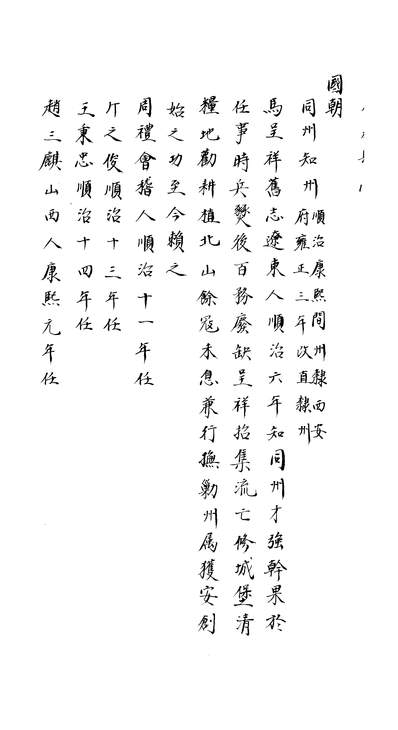 國朝
同州知州順治康熙間州隸西安
府雍正三年改直隸州
馬呈祥舊志遼東人順治六年知同州才強幹果於
任事時兵燹後百務廢缺呈祥招集流亡修城堡清
糧地勸耕植北山餘寇未息兼行撫剿州屬獲安創
始之功至今賴之
周禮會稽人順治十一年任
丌之俊順治十三年任
王秉忠順治十四年任
趙三麒山西人康熙元年任